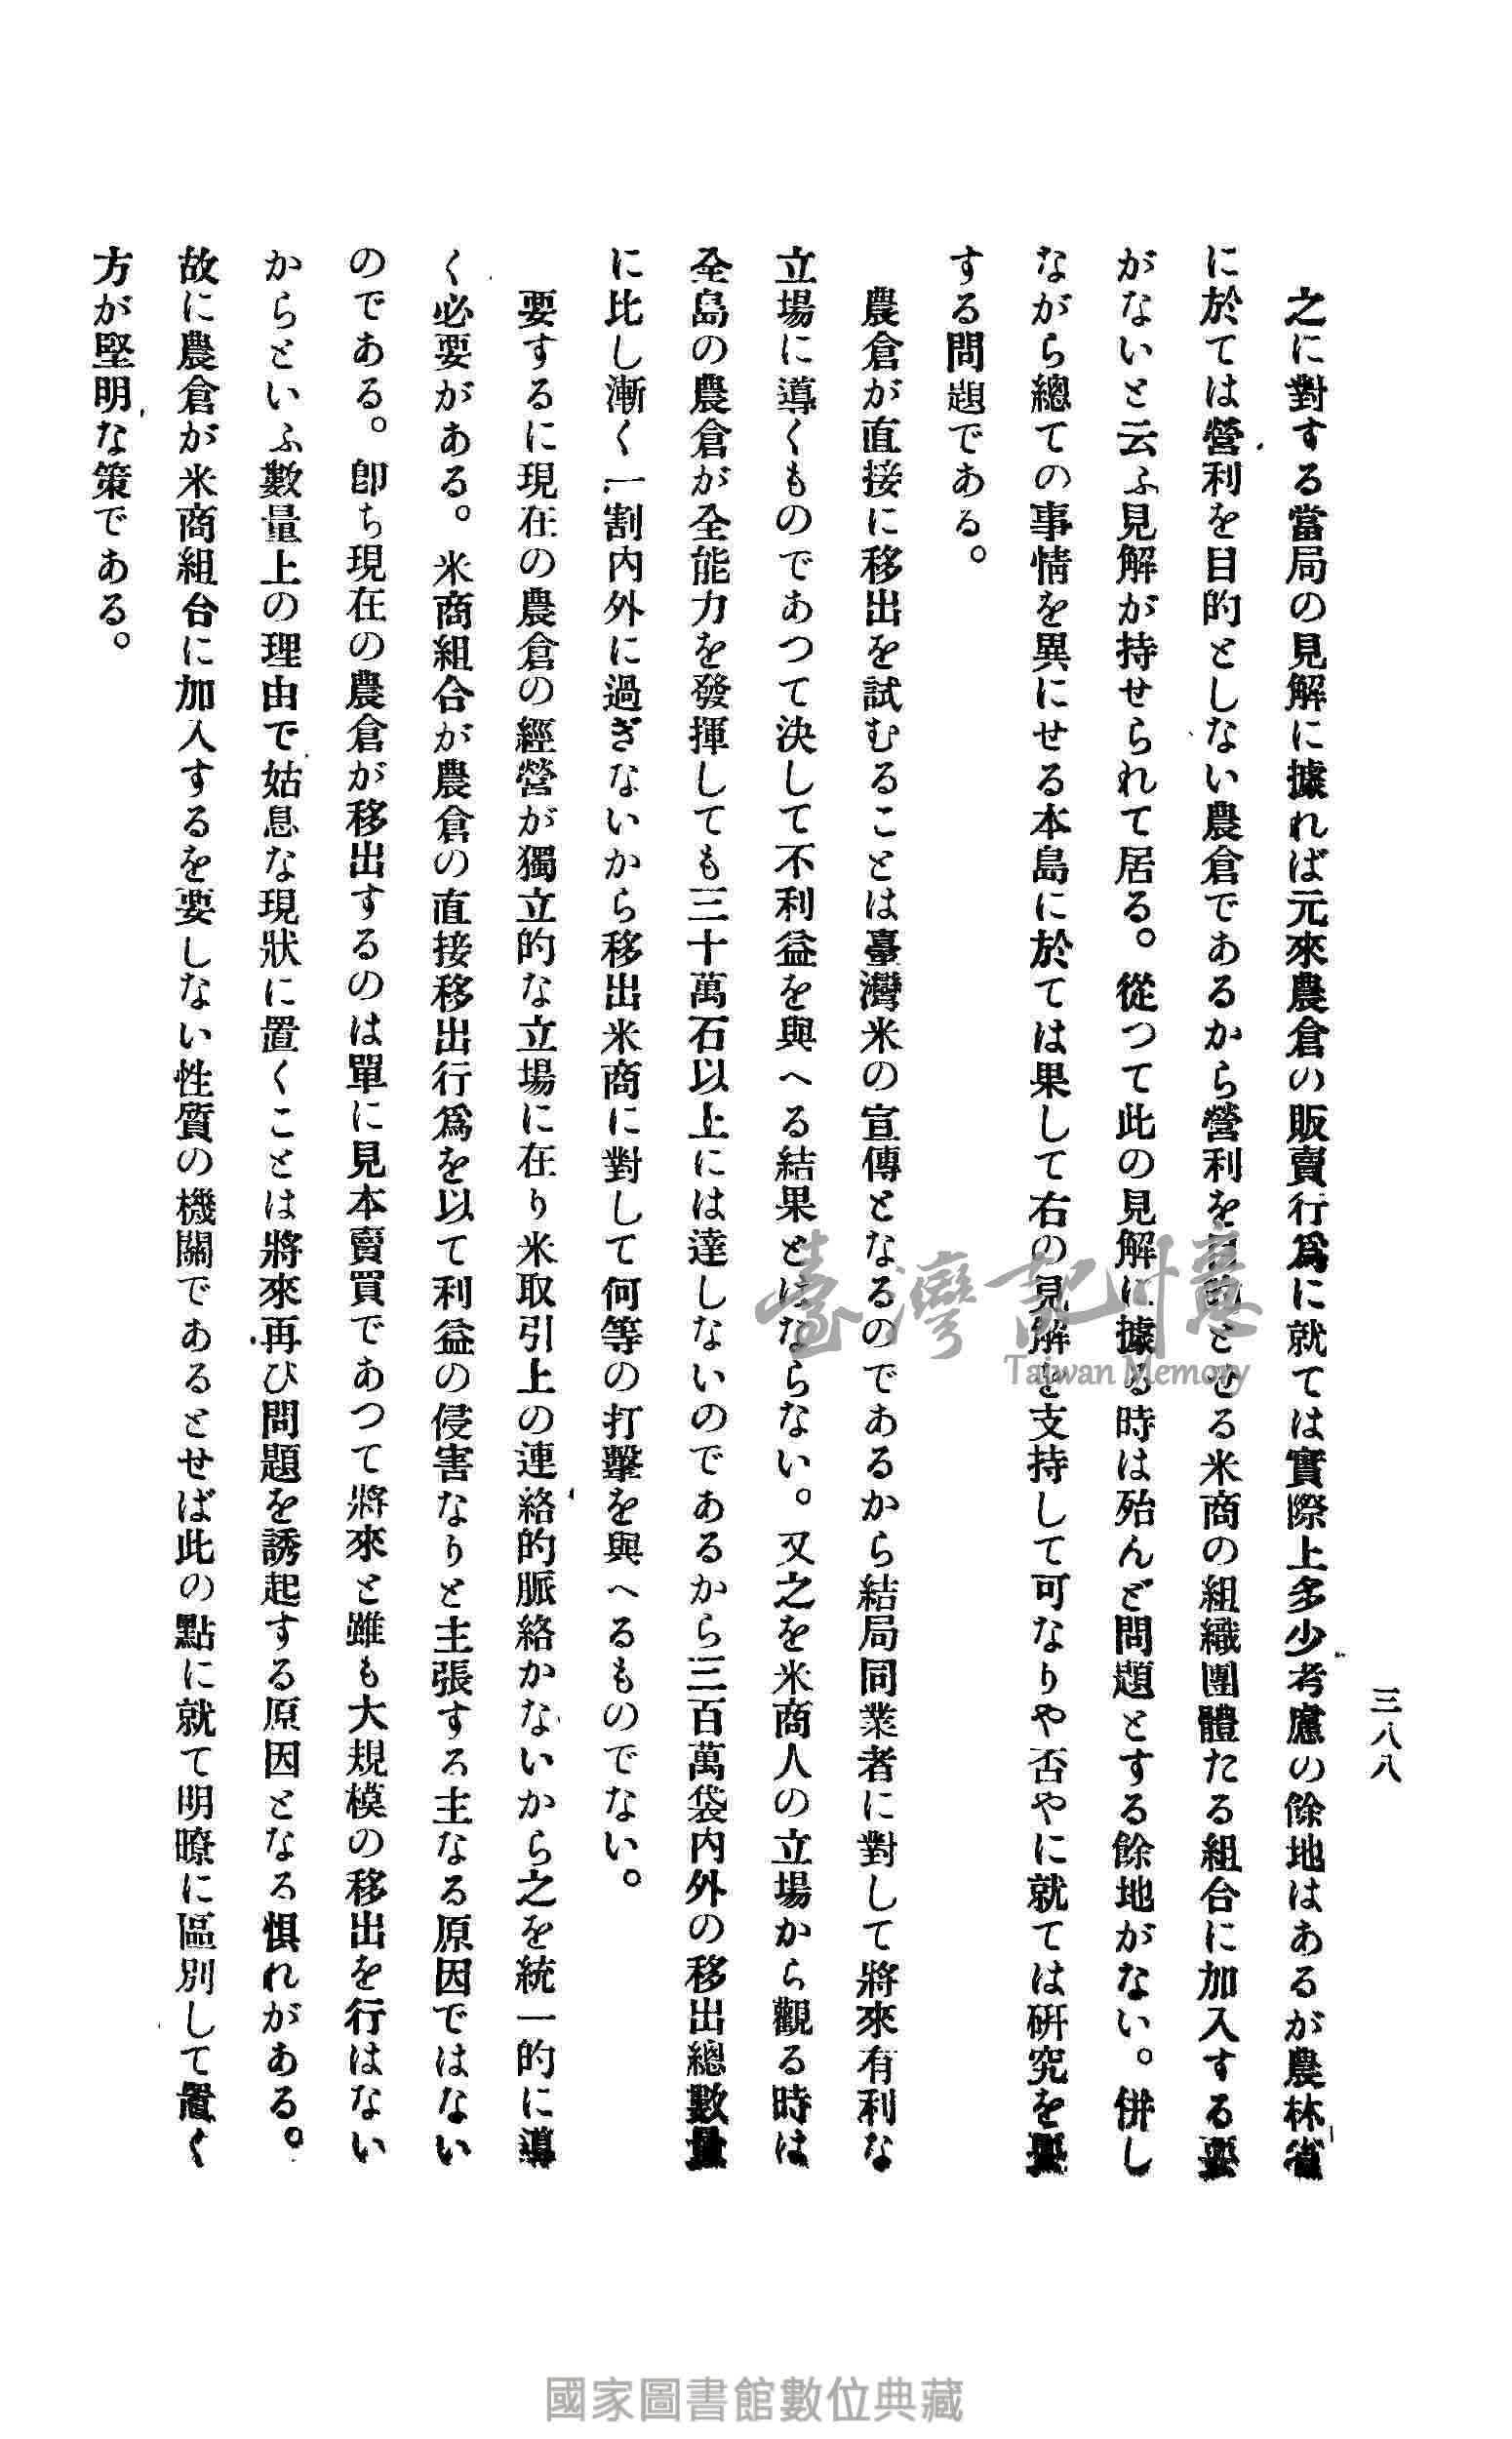 三八八
之に對する當局の見解に據れば元來農倉の販賣行爲に就ては實際上多少考慮の餘地はあるが農林省
に於ては營利を目的としない農倉であるから營利を目的とせる米商の組織團體たる組合に加入する要
がないと云ふ見解が持せられて居る。從つて此の見解に據る時は殆んど問題とする餘地がない。併し
ながら總ての事情を異にせる本島に於ては果して右の見解を支持して可なりや否やに就ては硏究を要
する問題である。
農倉が直接に移出を試むることは臺灣米の宣傳となるのであるから結局同業者に對して將來有利な
立場に導くものであつて決して不利益を與へる結果とはならない。又之を米商人の立場から觀る時は
全島の農倉が全能力を發揮しても三十萬石以上には達しないのであるから三百萬袋内外の移出總數量
に比し漸く一割内外に過ぎないから移出米商に對して何等の打擊を與へるものでない。
要するに現在の農倉の經營が獨立的な立場に在り米取引上の連絡的脈絡がないから之を統一的に導
く必要がある。米商組合が農倉の直接移出行爲を以て利益の侵害なりと主張する主なる原因ではない
のである。卽ち現在の農倉が移出するのは單に見本賣買であつて將來と雖も大規模の移出を行はない
からといふ數量上の理由で姑息な現狀に置くことは將來再び問題を誘起する原因となる惧れがある。
故に農倉が米商組合に加入するを要しない性質の機關であるとせば此の點に就て明瞭に區別して置く
方が堅明な策である。
臺灣記憶
Taiwan Memory
國家圖書館數位典藏